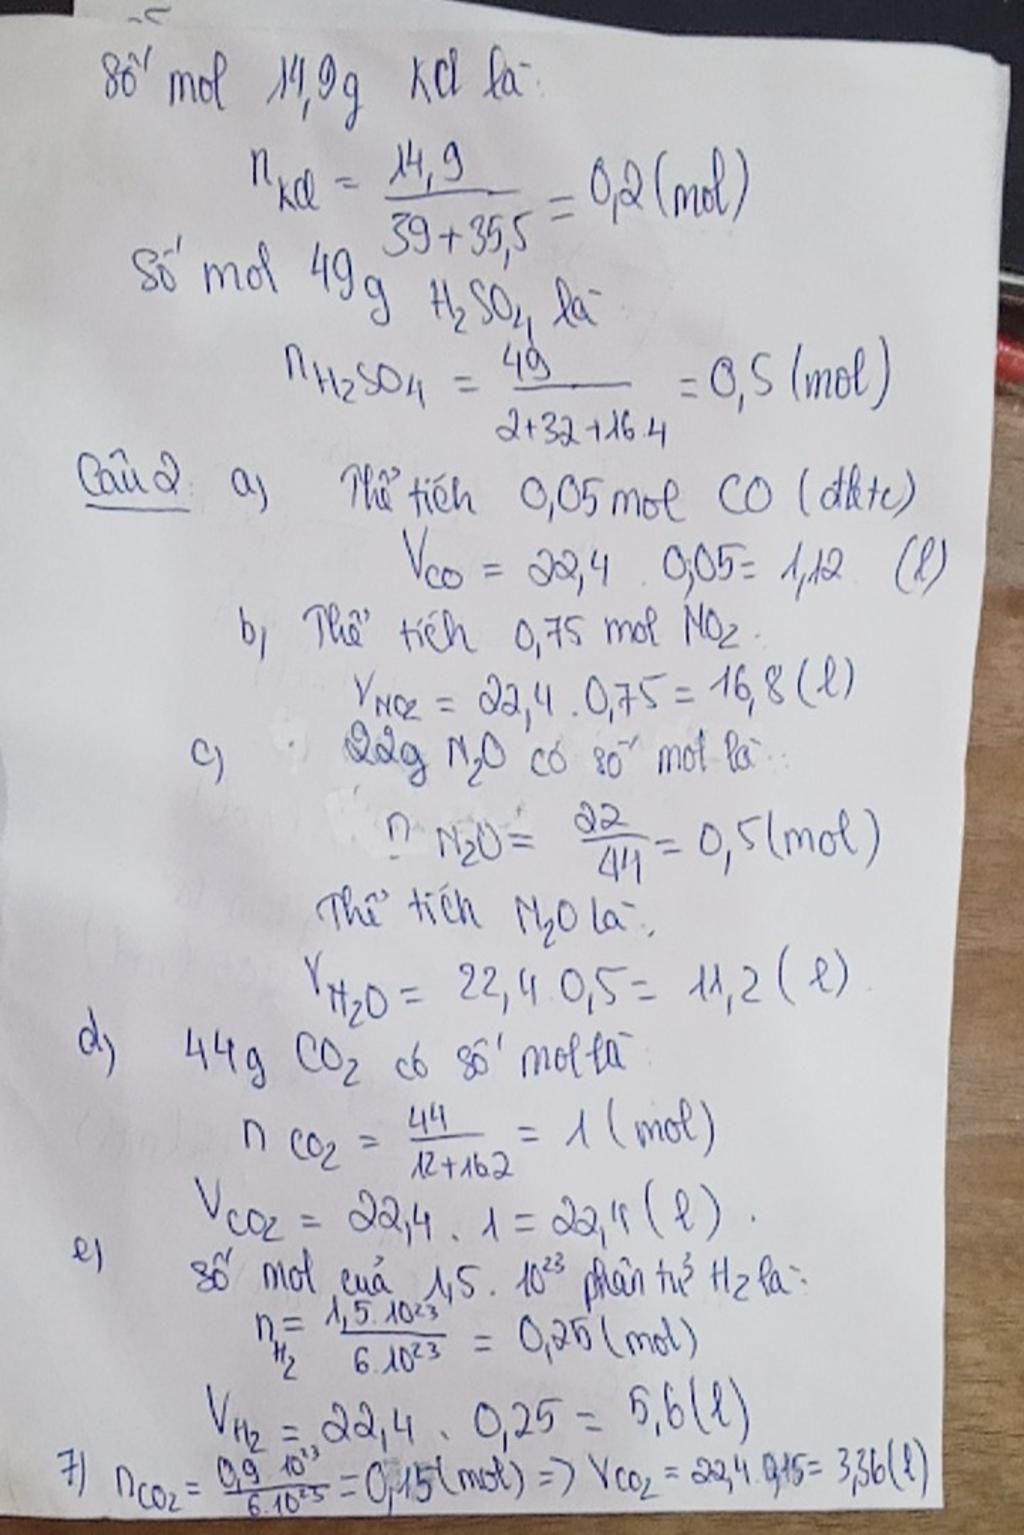 Số mol 14,9g KCl là:
nKCl = 14,9 / 39+35,5 = 0,2 (mol)
Số mol 49g H2SO4 là
nH2SO4 = 49 / 2+32+16.4 = 0,5 (mol)
Câu 2 a) Thể tích 0,05 mol CO (đktc)
VCO = 22,4 . 0,05 = 1,12 (l)
b) Thể tích 0,75 mol NO2.
VNO2 = 22,4 . 0,75 = 16,8 (l)
c) 22g N2O có số mol là:
nN2O = 22 / 44 = 0,5 (mol)
Thể tích N2O là:
VH2O = 22,4 . 0,5 = 11,2 (l)
d) 44g CO2 có số mol là:
nCO2 = 44 / 12+16.2 = 1 (mol)
VCO2 = 22,4 . 1 = 22,4 (l).
e) Số mol cuả 1,5 . 10²³ phân tử H2 là:
nH2 = 1,5.10²³ / 6.10²³ = 0,25 (mol)
VH2 = 22,4 . 0,25 = 5,6 (l)
7) nCO2 = 0,9.10²³ / 6.10²³ = 0,15 (mol) => VCO2 = 22,4.0,15 = 3,36 (l)